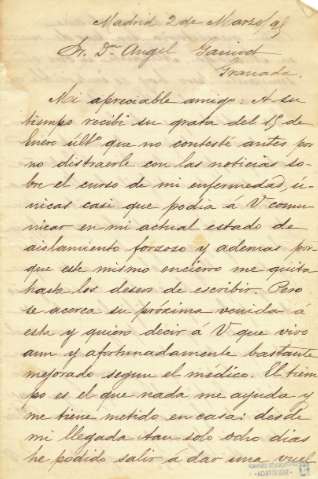 Madrid 2 de Marzo/95
Sr. Dn. Angel Ganivet
Granada.
Mi apreciable amigo: A su
tiempo recibí su grata del 15 de
Enero últº que no contesté antes por
no distraerle con las noticias so-
bre el curso de mi enfermedad, ú-
nicas casi que podia á V comu-
nicar en mi actual estado de
aislamiento forzoso y ademas por
que este mismo encierro me quita
hasta los deseos de escribir. Pero
se acerca su próxima venida á
esta y quiero decir á V que vivo
aun y afortunadamente bastante
mejorado segun el médico. El tiem
po es el que nada me ayuda y
me tiene metido en casa: desde
mi llegada tan solo ocho dias
he podido salir á dar una vuel